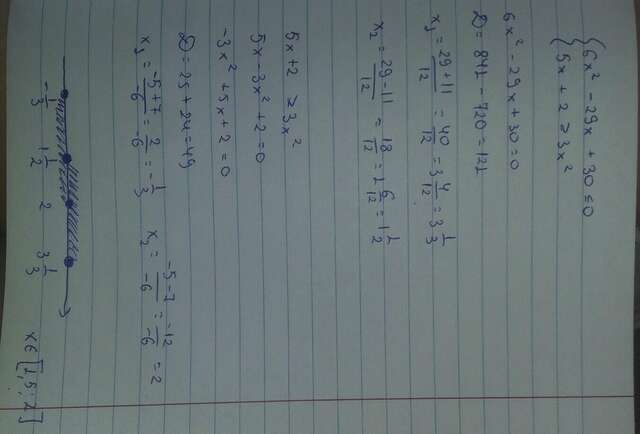 { 6x² - 29x + 30 ≤ 0
{ 5x + 2 ≥ 3x²
6x² - 29x + 30 = 0
D = 841 - 720 = 121
x₁ = (29 + 11)/12 = 40/12 = 3 4/12 = 3 1/3
x₂ = (29 - 11)/12 = 18/12 = 1 6/12 = 1 1/2
5x + 2 ≥ 3x²
5x - 3x² + 2 = 0
-3x² + 5x + 2 = 0
D = 25 + 24 = 49
x₁ = (-5 + 7)/-6 = 2/-6 = -1/3 x₂ = (-5 - 7)/-6 = -12/-6 = 2
-1/3 1 1/2 2 3 1/3
x ∈ [1,5; 2]